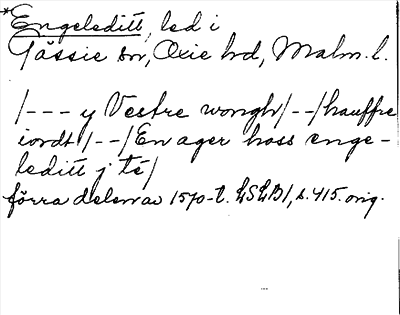 *Engeleditt, led i
Gässie sn, Oxie hd, Malm. l.
/--- y Vestre wongh/--/hauffre
iordt/--/En ager hoss enge-
leditt j té/
förra delen av 1570-t. LSLB1, s. 415. orig.